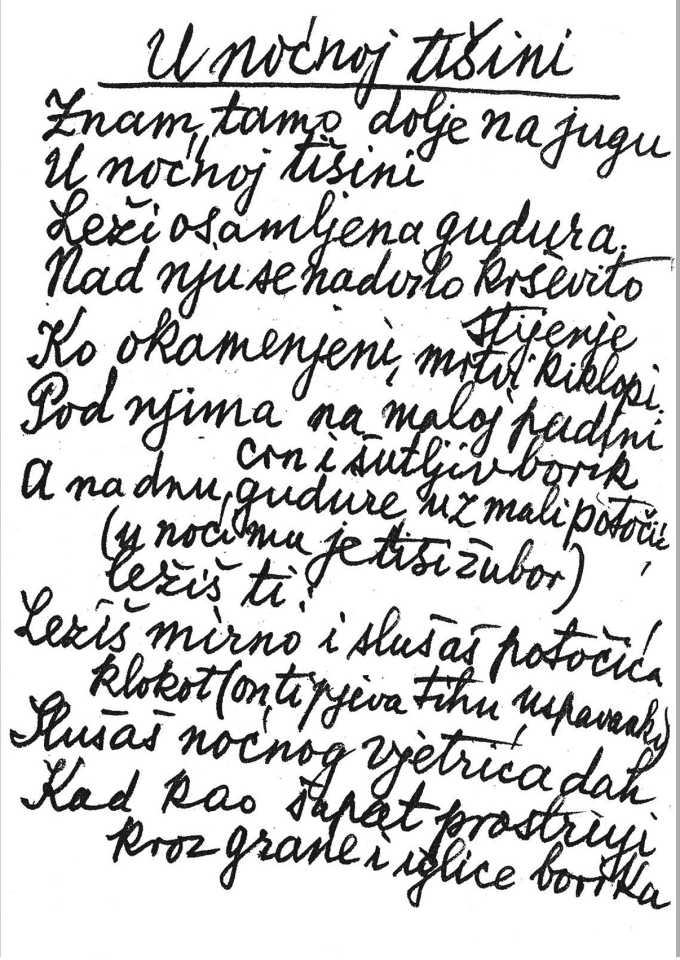 U noćnoj tišini
Znam, tamo dolje na jugu
U noćnoj tišini
Leži osamljena gudura.
Nad nju se nadvilo krševito
stijenje
Ko okamenjeni, mrtvi kiklopi.
Pod njima na maloj padini
crn i šutljiv borik
A na dnu gudure uz mali potočić
(u noći mu je tiši žubor)
ležiš ti.
Ležiš mirno i slušaš potočića
klokot (on ti pjeva tihu uspavanku)
Slušaš noćnog vjetrića dah
Kad kao šapat prostruji
kroz grane i iglice borika